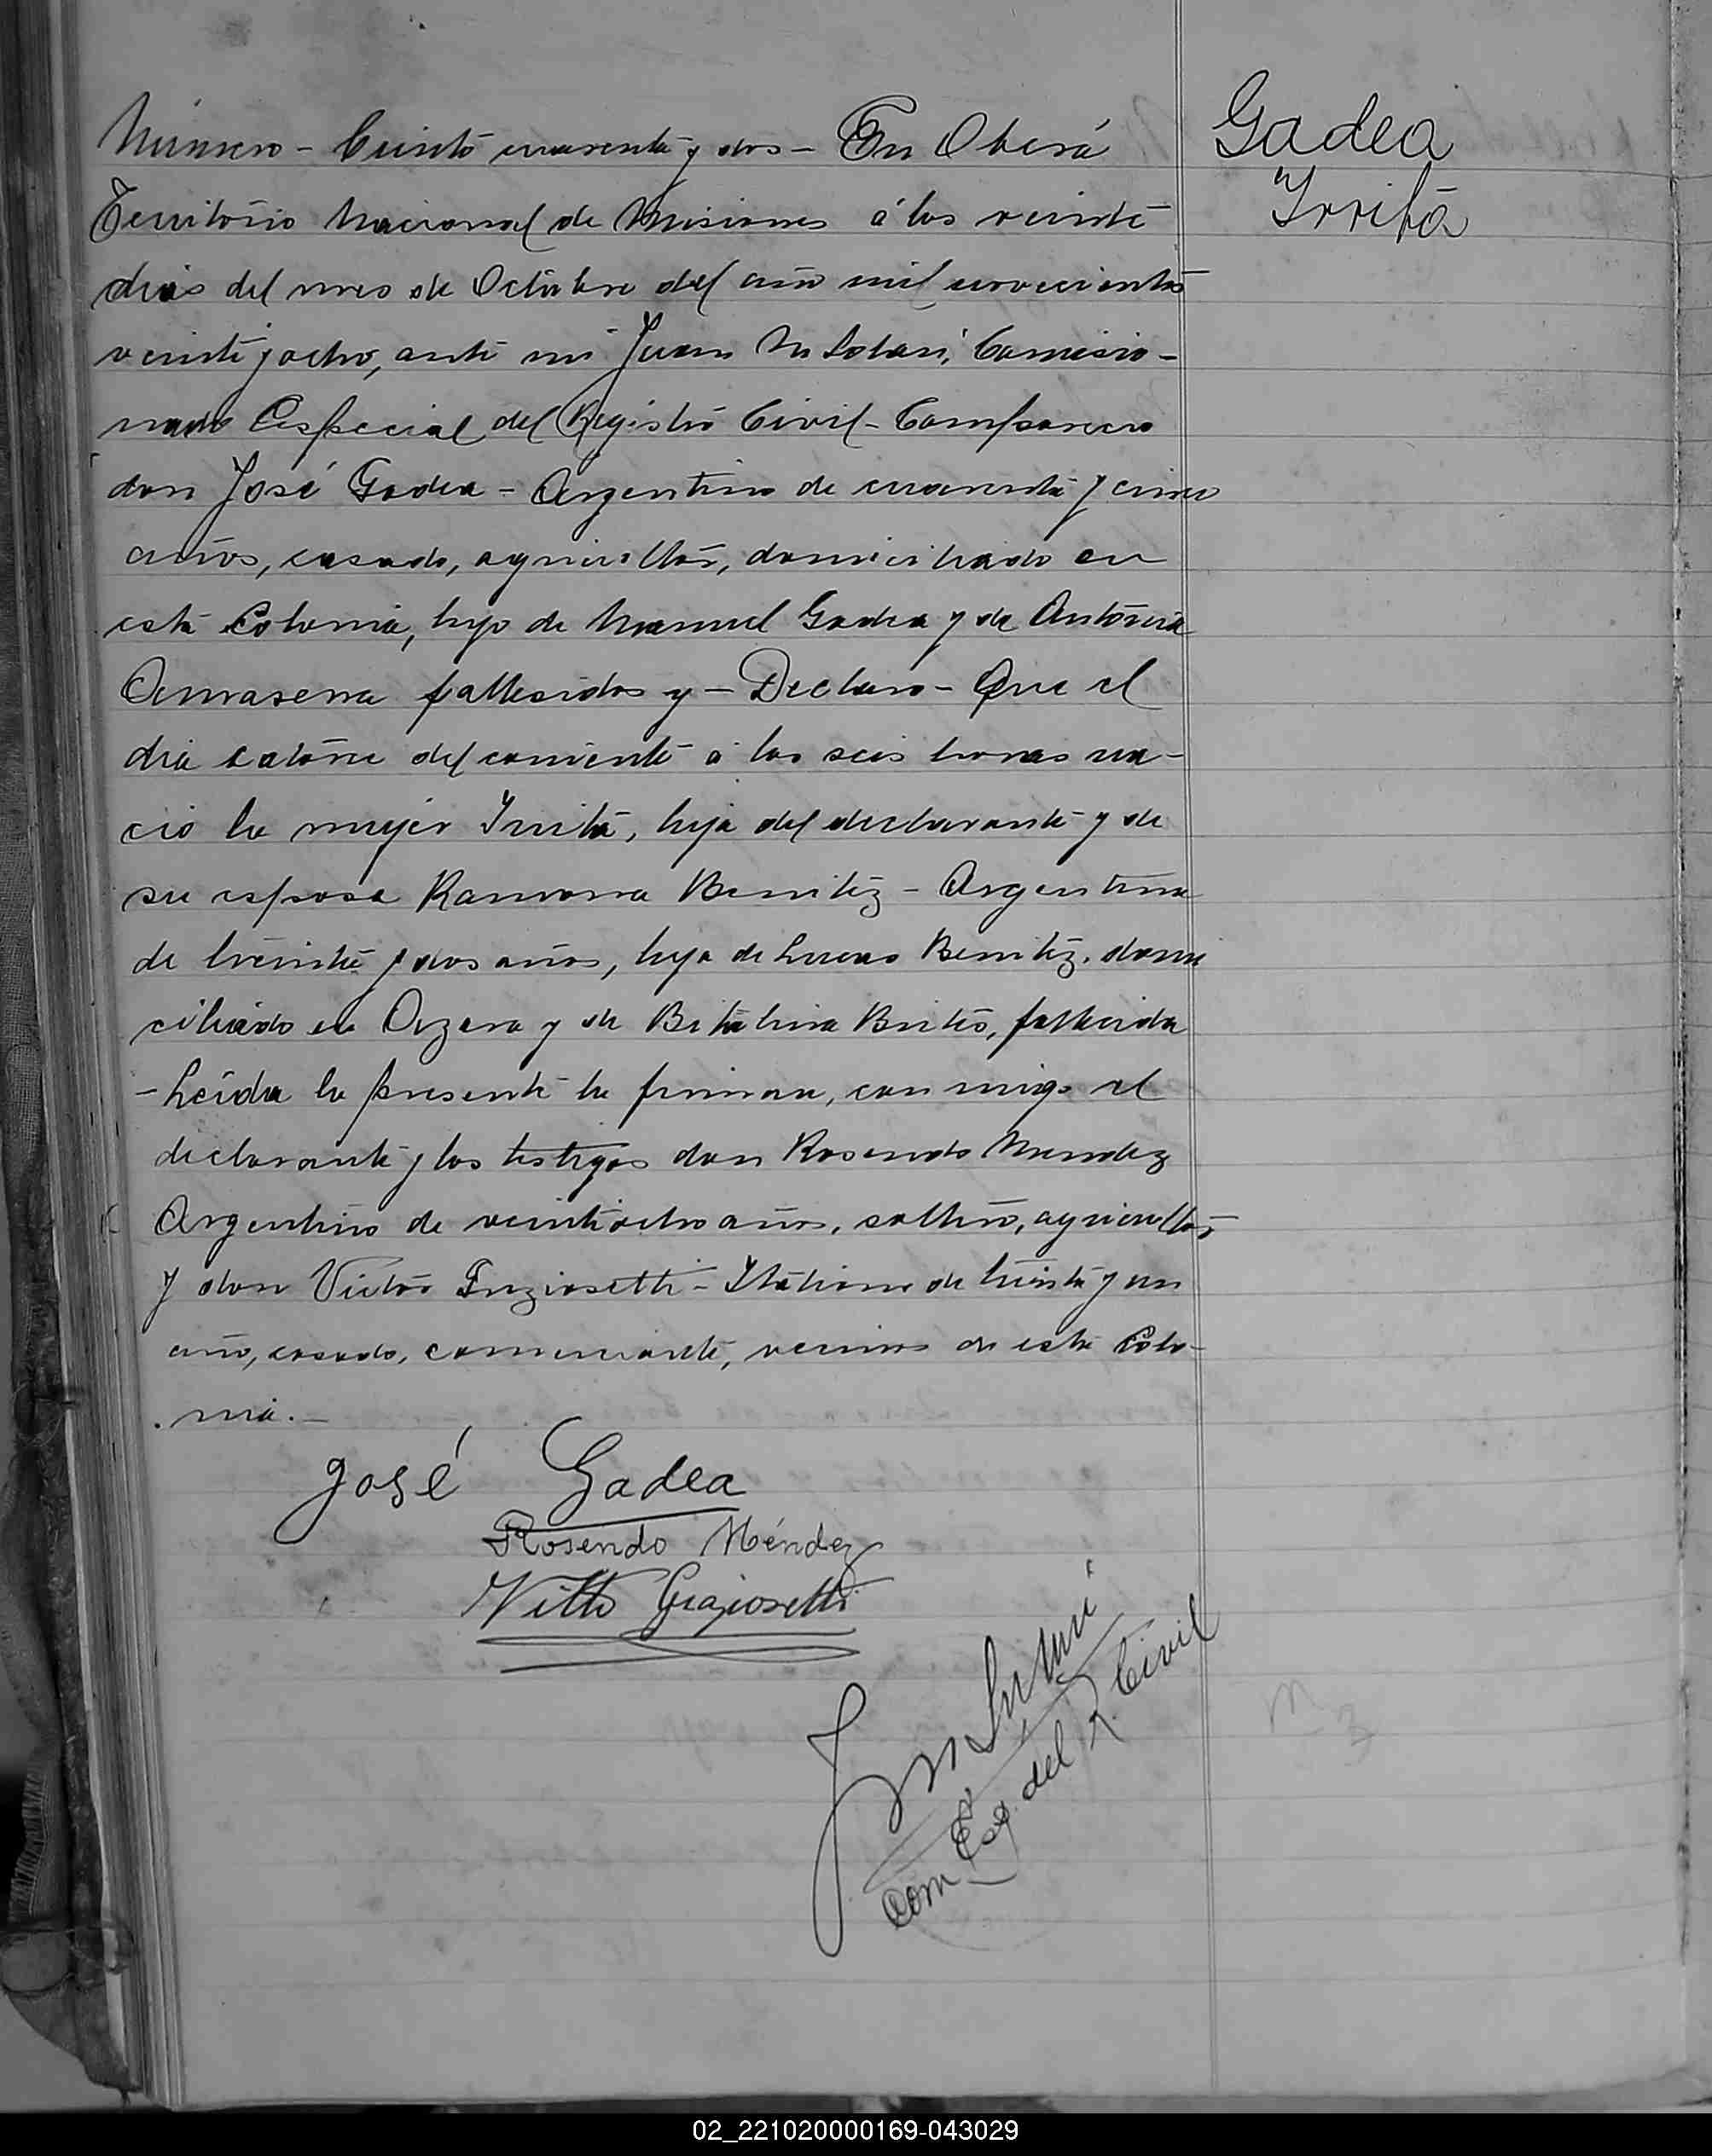 Gadea
Irrità
Número - Ciento cuarenta y dos - En Oberá
Territorio Nacional de Misiones á los veinte
dias del mes de Octubre del año mil novecientos
veinte y ocho, ante mi Juan M Solari, Comisio-
nado Especial del Registro Civil - Comparecio
don José Gadea - Argentino de cuarenta y cinco
años, casado, agricultor, domiciliado en
esta Colonia, hijo de Manuel Gadea y de Antonia
fallesidos y - Declaro - Que el
dia catorce del corriente á las seis horas na-
cio la mujer Irrita, hija del declarante y de
su esposa Ramona Benitez - Argentina
de treinta y dos años, hija de Benitez, domi
ciliado en y de Britos, fallecida
- Leída la presente la firman, con migo el
declarante y los testigos don Rosendo Mendez
Argentino de veintiocho años, soltero, agricultor
y don Victor - Italiano de treinta y un
año, casado, comerciante, vecinos de esta Colo-
nia. -
José Gadea
Rosendo Méndez
Vitto Graziosetti
Com Esp. del R. Civil
02_221020000169-043029